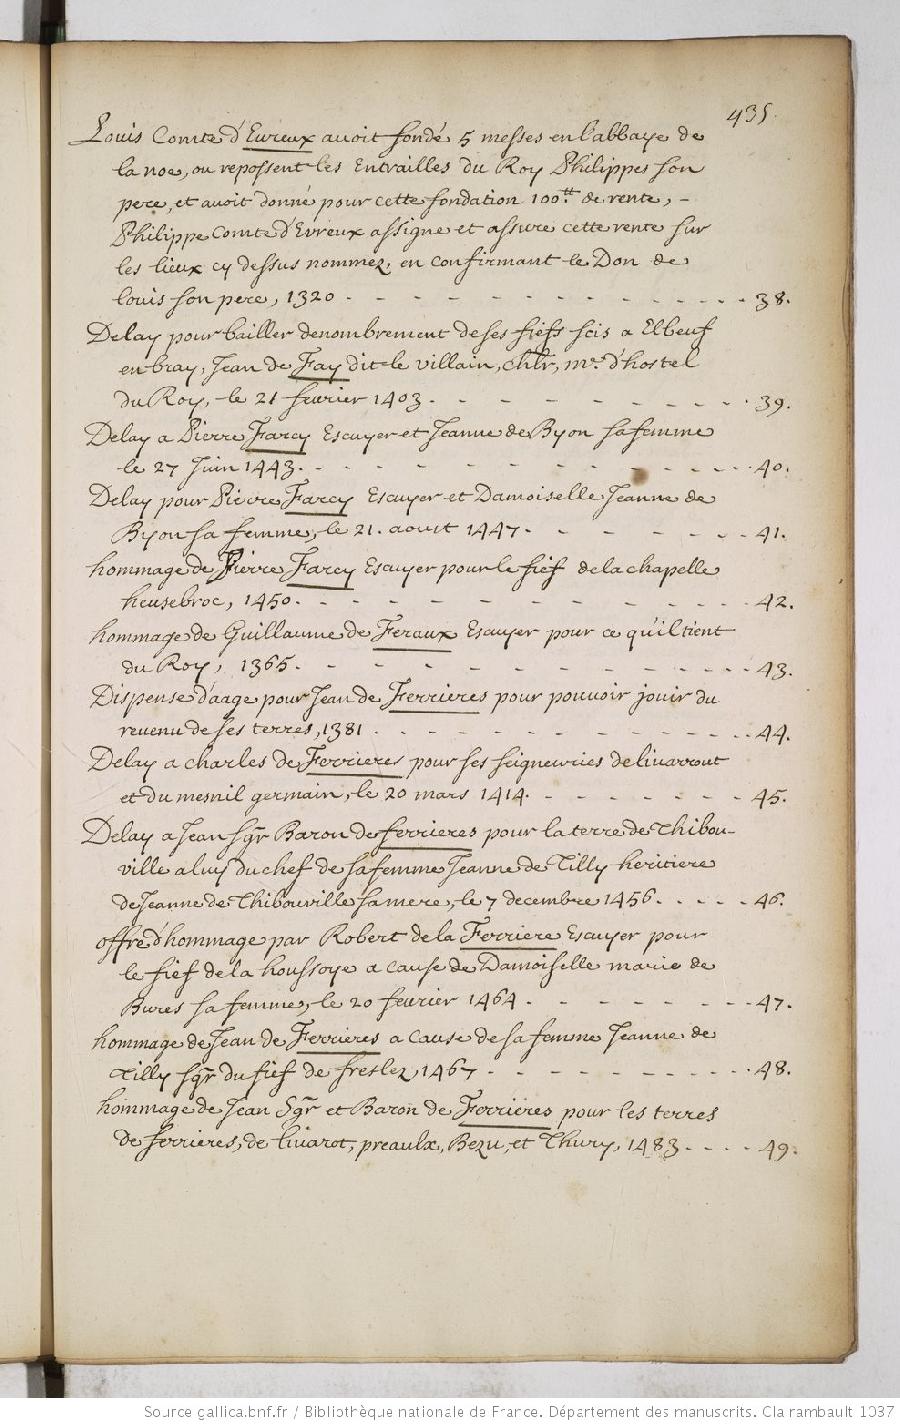 435.
Louis Comte d'Evreux avoit fondé 5 messes en l'abbaye de
la noe, ou repossent les Entrailles du Roy Philippes son
pere, et avoit donné pour cette fondation 100.tt de rente, -
Philippe Comte d'Evreux assigne et assure cette rente sur
les lieux cy dessus nommez, en confirmant le Don de
louis son pere, 1320 - - - - - - - - - - - 38.
Delay pour bailler denombrement de ses fiefs scis a Elbeuf
en bray, Jean de Fay dit le villain, chlr, mre. d'hostel
du Roy, le 21 fevrier 1403 - - - - - - - - - 39.
Delay a Pierre Farcy Escuyer et Jeanne de Byon sa femme
le 27 Juin 1443. - - - - - - - - - - - - 40.
Delay pour Pierre Farcy Escuyer et Damoiselle Jeanne de
Byon sa femme, le 21. aout 1447 - - - - - - 41.
hommage de Pierre Farcy Escuyer pour le fief de la chapelle
heusebroc, 1450. - - - - - - - - - - - - 42.
hommage de Guillaume de Feraux Escuyer pour ce qu'il tient
du Roy, 1365. - - - - - - - - - - - - 43.
Dispense d'aage pour Jean de Ferrieres pour pouvoir jouir du
revenu de ses terres, 1381 - - - - - - - - - 44.
Delay a charles de Ferrieres pour ses seigneuries de livarrout
et du mesnil germain, le 20 mars 1414 - - - - - - 45.
Delay a Jean sgr Baron de ferrieres pour la terre de Thibou-
ville a luy du chef de sa femme Jeanne de Tilly heritiere
de Jeanne de Thibouville sa mere, le 7 decembre 1456 - - - - 46.
offre d'hommage par Robert de la Ferriere Escuyer pour
le fief de la houssoye a cause de Damoiselle marie de
Bures sa femme, le 20 fevrier 1464 - - - - - - - 47.
hommage de Jean de Ferrieres a cause de sa femme Jeanne de
Tilly sgr du fief de freslez, 1467 - - - - - - - - 48.
hommage de Jean Sgr et Baron de Ferrieres pour les terres
de ferrieres, de livarot, preaulx, Bezu, et Thury, 1483 - - - - 49.
Source gallica.bnf.fr / Bibliothèque nationale de France. Département des manuscrits. Clairambault 1037